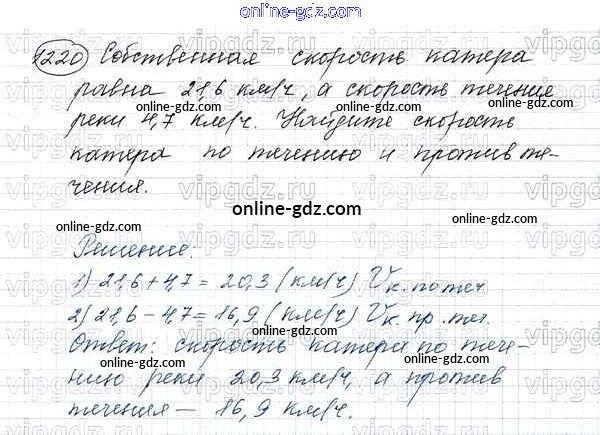 online-gdz.com
1220 Собственная скорость катера
равна 21,6 км/ч, а скорость течение
online-gdz.com online-gdz.com
реки 4,7 км/ч. Найдите скорость
катера по течению и против те-
vipgdz.ru vipgdz.ru vipgdz.ru
чения.
online-gdz.com
online-gdz.com online-gdz.com
Решение.
vipgdz.ru vipgdz.ru vipgdz.ru
1) 21,6 + 4,7 = 20,3 (км/ч) Vк. по теч
2) 21,6 - 4,7 = 16,9 (км/ч) Vк. пр. теч.
online-gdz.com
Ответ: скорость катера по тече-
нию реки 20,3 км/ч, а против
online-gdz.com online-gdz.com
течения — 16,9 км/ч.